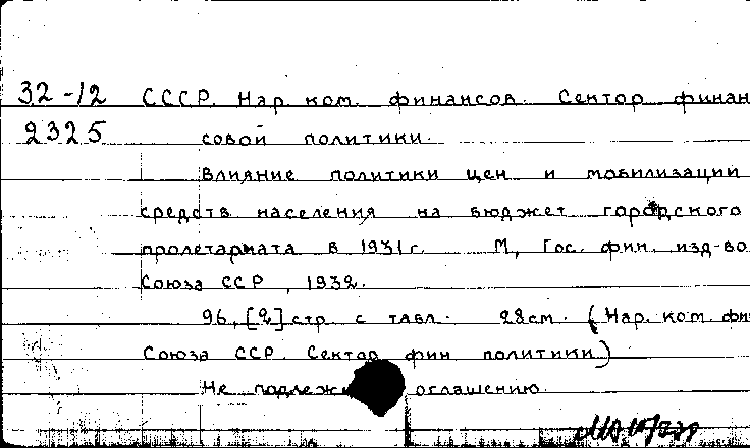 32-12 СССР. Нар. ком. финансов. Сектор финан
2325 совой политики.
Влияние политики цен и мобилизации
средств населения на бюджет городского
пролетариата в 1931 г. М, Гос. фин. изд-во
Союза ССР, 1932.
96, [2] стр. с табл. 28см. (Нар. ком. фин
Союза ССР. Сектор фин политики)
Не оглашению.